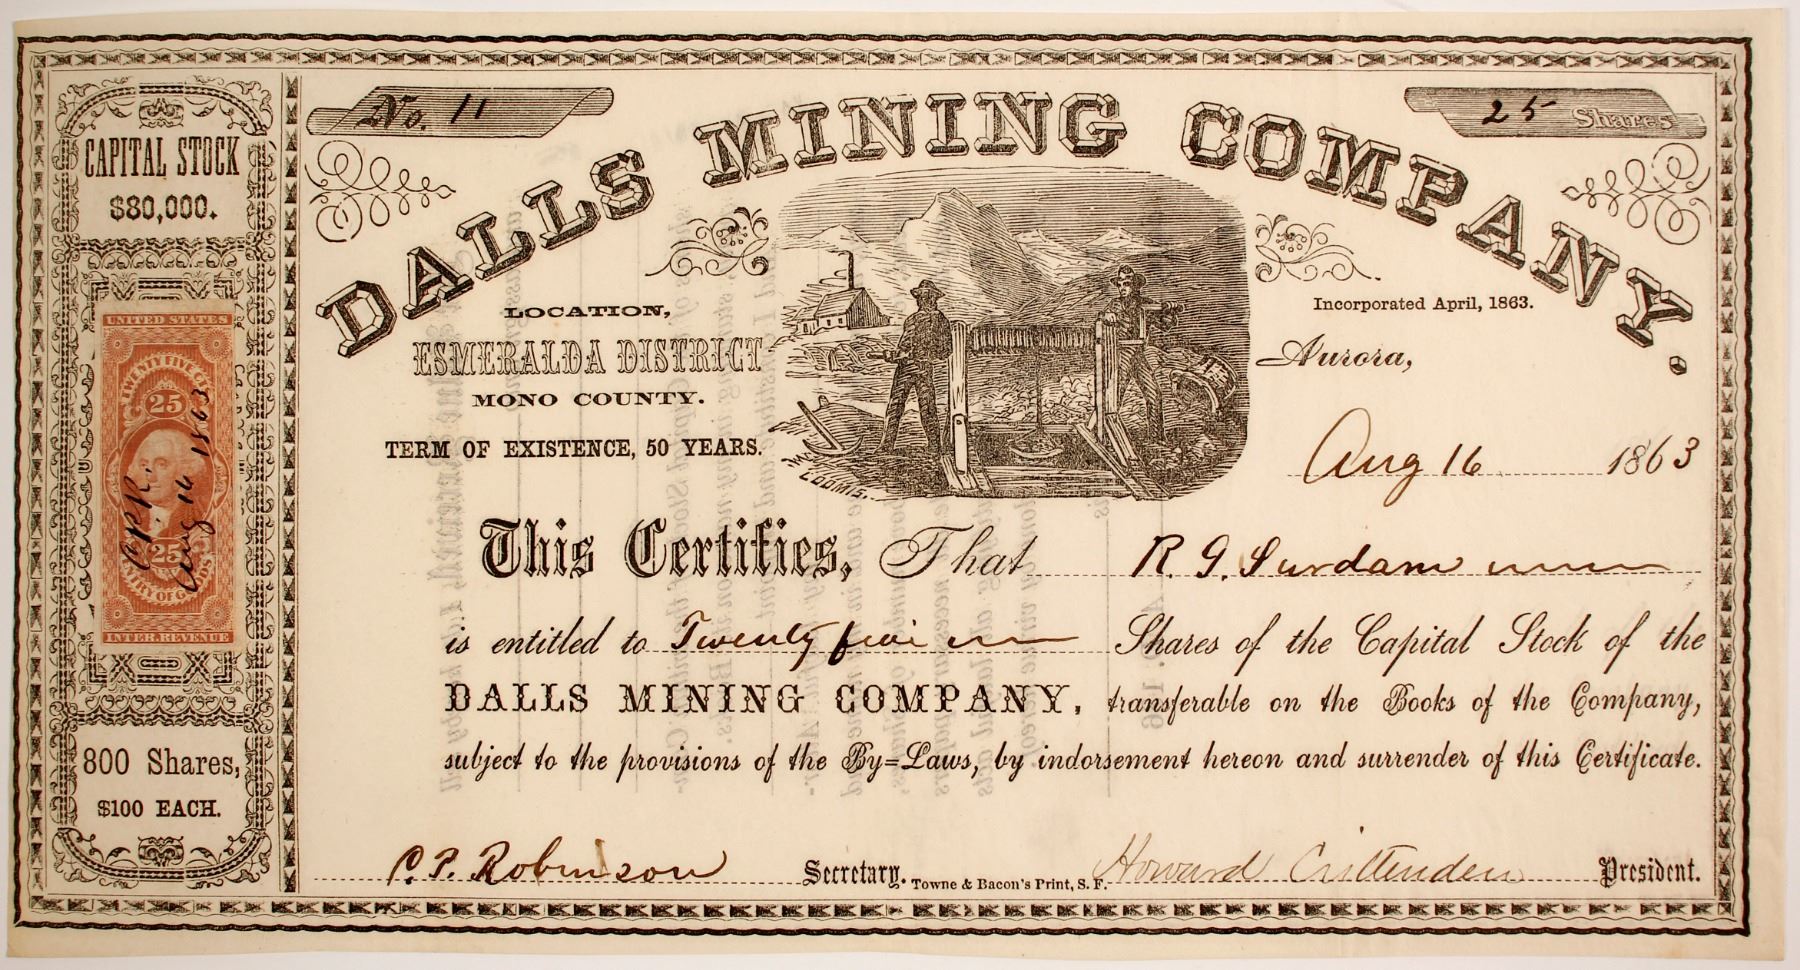 No. 11
25 Shares
DALLS MINING COMPANY.
CAPITAL STOCK
$80,000.
UNITED STATES
TWENTY FIVE CTS
25
25
INTER. REVENUE
Aug 16 1863
800 Shares,
$100 EACH.
LOCATION,
ESMERALDA DISTRICT
MONO COUNTY.
TERM OF EXISTENCE, 50 YEARS.
LOOMIS.
Incorporated April, 1863.
Aurora,
Aug 16 1863
This Certifies, That R. G. Surdam
is entitled to Twenty five Shares of the Capital Stock of the
DALLS MINING COMPANY, transferable on the Books of the Company,
subject to the provisions of the By=Laws, by indorsement hereon and surrender of this Certificate.
C. P. Robinson Secretary. Towne & Bacon's Print, S. F. Howard Crittenden President.